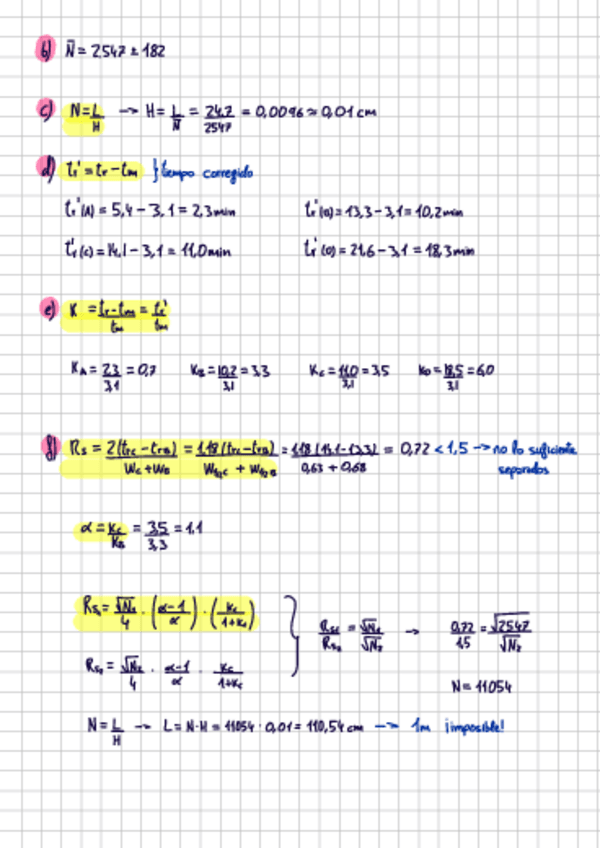 b) N̄ = 2547 ± 182
c) N = L/H → H = L/N̄ = 24,7/2547 = 0,0096 ≈ 0,01 cm
d) tr' = tr - tm } tempo corregido
tr'(A) = 5,4 - 3,1 = 2,3 min tr'(B) = 13,3 - 3,1 = 10,2 min
tr'(C) = 14,1 - 3,1 = 11,0 min tr'(D) = 21,6 - 3,1 = 18,3 min
e) K = tr-tm/tm = tr'/tm
KA = 2,3/3,1 = 0,7 KB = 10,2/3,1 = 3,3 KC = 11,0/3,1 = 3,5 KD = 18,5/3,1 = 6,0
f) Rs = 2(trc - trB)/Wc + WB = 1,18(trc - trB)/W½c + W½B = 1,18(14,1-13,3)/0,63 + 0,68 = 0,72 < 1,5 → no lo suficiente
separados
α = Kc/KB = 3,5/3,3 = 1,1
Rs₁ = √N₁/4 · (α-1/α) · (Kc/1+Kc)
Rs₁/Rs₂ = √N₁/√N₂ → 0,72/1,5 = √2547/√N₂
Rs₂ = √N₂/4 · α-1/α · Kc/1+Kc
N = 11054
N = L/H → L = N·H = 11054 · 0,01 = 110,54 cm → 1m ¡imposible!